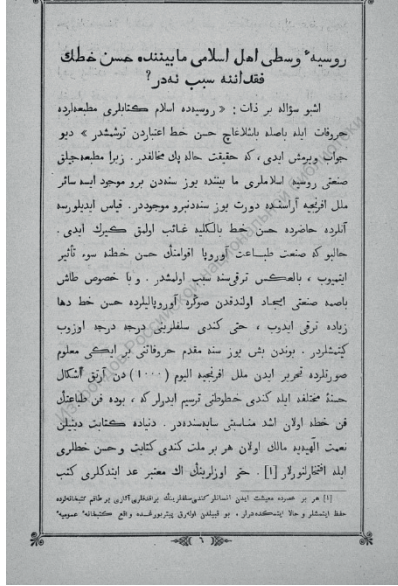 روسیهٔ وسطی اهل اسلامی مابیننده حسن خطك
فقداننه سبب نه‌در؟
اشبو سؤاله بر ذات: « روسیه‌ده اسلام كتابلری مطبعه‌لرده
حروفات ایله باصله باشلاغاچ حسن خط اعتباردن توشمشدر » دیو
جواب ویرمش ایدی، كه حقیقت حاله پك مخالفدر. زیرا مطبعه‌جیلق
صنعتی روسیه اسلاملری ما بیننده یوز سنه‌دن برو موجود ایسه سائر
ملل افرنجیه آراسنده دورت یوز سنه‌دنبرو موجوددر. قیاس ایدیلورسه
آنلرده حاضرده حسن خط بالكلیه غائب اولمق كیرك ایدی.
حالبو كه صنعت طباعت آوروپا اقوامنك حسن خطنه سوء تأثیر
ایتمیوب، بالعكس ترقی‌سنه سبب اولمشدر. و با خصوص طاش
باصمه صنعتی ایجاد اولندقدن صوڭره آوروپالیلرده حسن خط دها
زیاده ترقی ایدوب، حتی كندی سلفلرینی درجه درجه اوزوب
كیتمشلردر. بوندن بش یوز سنه مقدم حروفاتنی بر ایكی معلوم
صورتلرده تحریر ایدن ملل افرنجیه الیوم (١٠٠٠) دن آرتق اشكال
حسنهٔ مختلفه ایله كندی خطوطنی ترسیم ایدرلر كه، بوده فن طباعتك
فن خطه اولان اشد مناسبتی سایه‌سنده‌در. دنیاده كتابت دیبلن
نعمت الهیه‌یه مالك اولان هر بر ملت كندی كتابت و حسن خطلری
ایله افتخارلنورلار [١]. حتی اوزلرینك اك معتبر عد ایتدكلری كتب
[١] هر بر عصرده معیشت ایدن انسانلر كندی سلفلرینك براقدقلری آثاری بر طاقم كتبخانه‌لرده
حفظ ایتمشلر و حالا ایتمكده‌درلر. بو قبیلدن فوتەرق پیتربورغده واقع كتبخانهٔ عمومیهٔ
٦
из фондов Российской национальной библиотеки